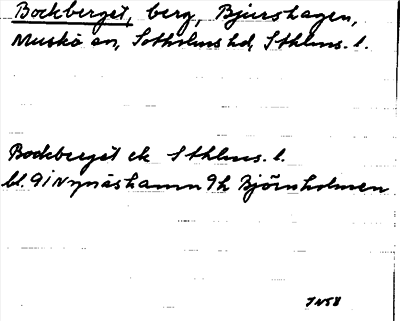 Bockberget, berg, Bjurshagen,
Muskö sn, Sotholms hd, Sthlms. l.
Bockberget ek Sthlms. l.
bl. 91 Nynäshamn 9h Björnholmen
JN58